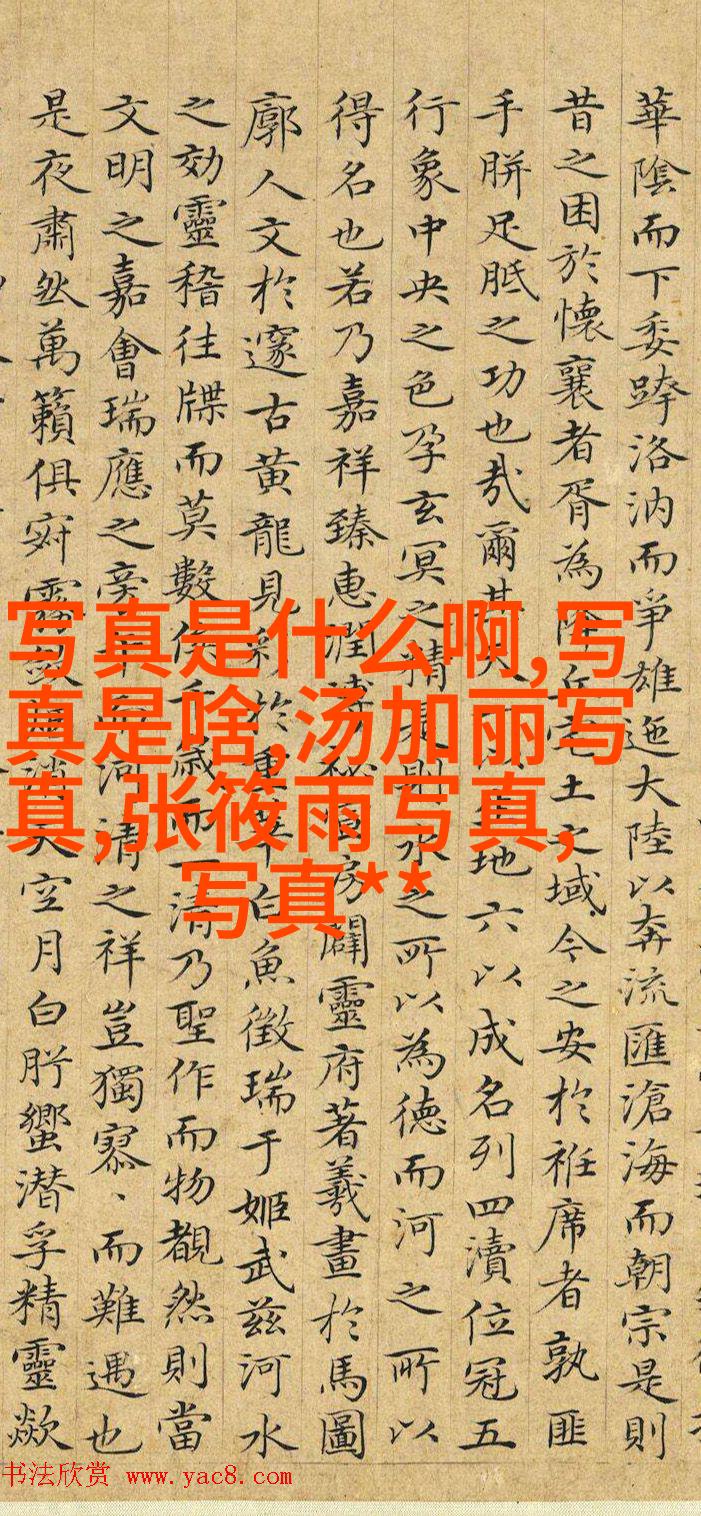 華陰而下委跨洛汭而爭雄迤大陸以奔流匯滄海而朝宗是則
昔之困於懷襄者胥為降丘宅土之域今之安於袵席者孰匪
手胼足胝之功也哉爾其天一以生地六以成名列四瀆位冠五
行象中央之色孕玄冥之精是則水之所以為德而河之所以
得名也若乃嘉祥臻惠潤溥祕房闢靈府著羲畫於馬圖
廓人文於邃古黃龍見彩於重華白魚徵瑞于姬武茲河水
之効靈稽往牒而莫數俟千歲而一清乃聖作而物覩然則當
文明之嘉會瑞應之旁河清之祥豈獨寡、而難遇也
是夜肅然萬籟俱寂霧斂消天空月白肸蠁潛孚精靈歘
写真是什么啊,写
真是啥,汤加丽写
真,张筱雨写真,
写真**
书法欣赏 www.yac8.com